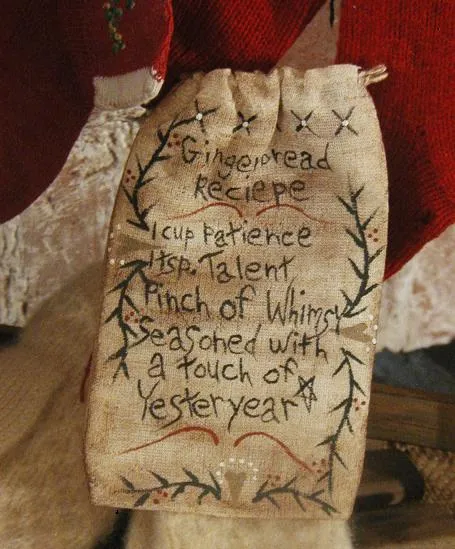 Gingerbread
Reciepe
1 cup Patience
1 tsp. Talent
Pinch of Whimsy
Seasoned with
a touch of
Yesteryear